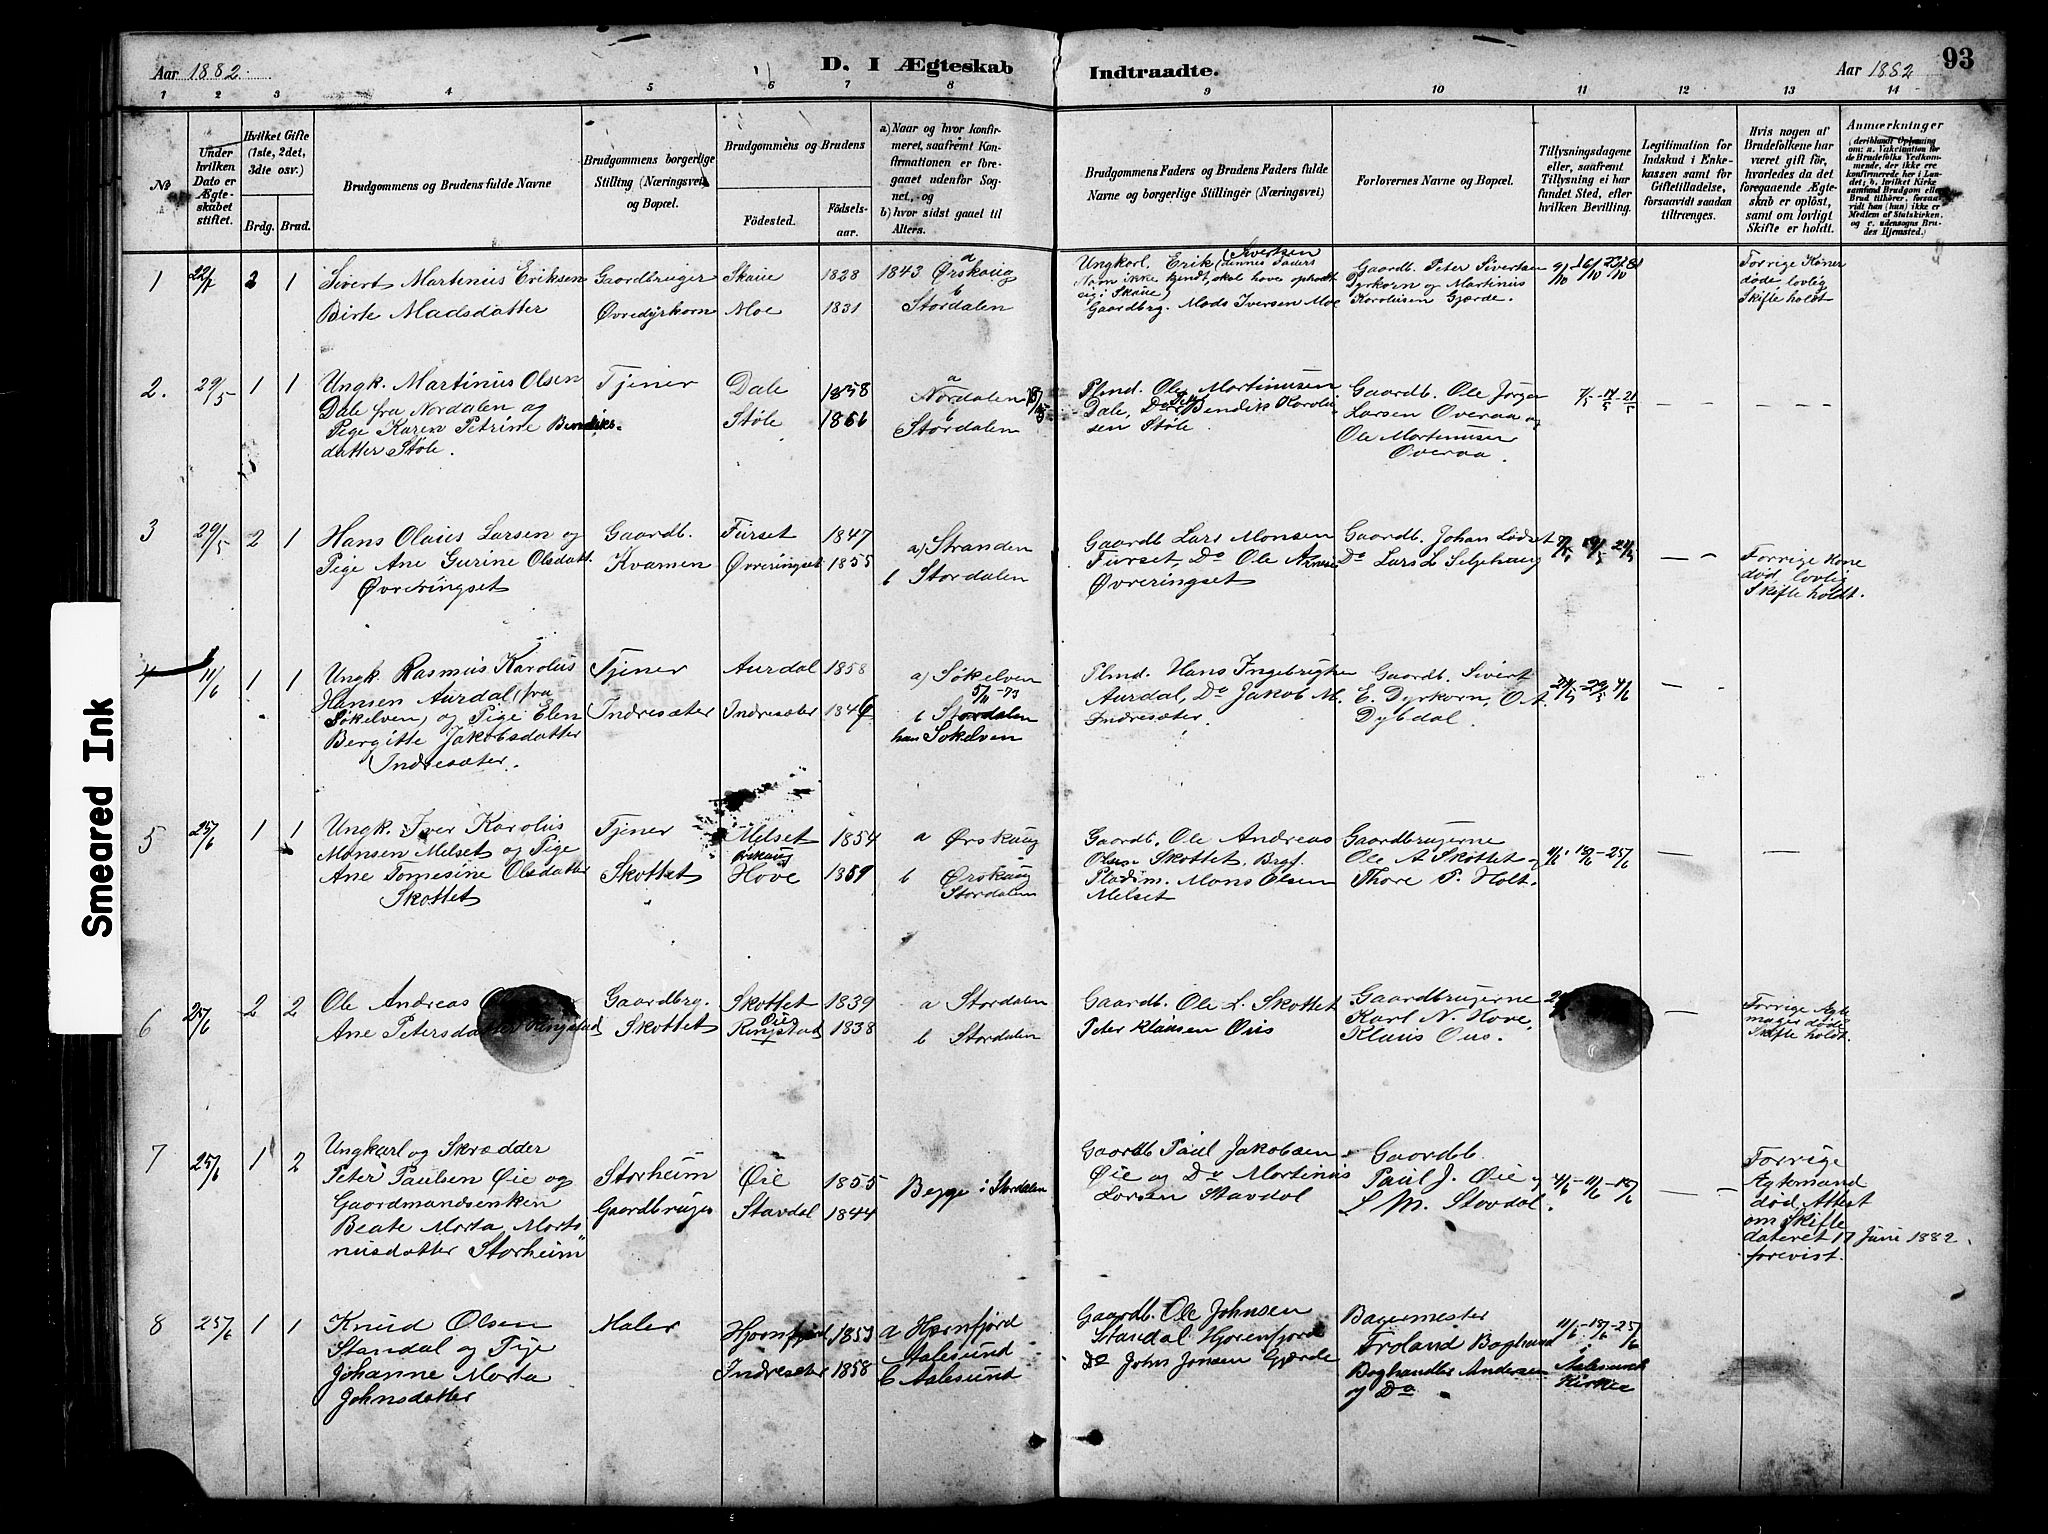 Aar 1882.
D. I Ægteskab
Indtraadte.
Aar 1882
93
1 2 3 4 5 6 7 8 9 10 11 12 13 14
No
Under hvilken Dato er Ægteskabet stiftet.
Hvilket Gifte (1ste, 2det, 3die osv.)
Brdg. Brud.
Brudgommens og Brudens fulde Navne
Brudgommens borgerlige Stilling (Næringsvei) og Bopæl.
Brudgommens og Brudens
Fødested.
Fødselsaar.
a) Naar og hvor konfirmeret, saafremt Konfirmationen er foregaaet udenfor Sognet, og
b) hvor sidst gaaet til Alters.
Brudgommens Faders og Brudens Faders fulde Navne og borgerlige Stillinger (Næringsvei)
Forlovernes Navne og Bopæl.
Tillysningsdagene eller, saafremt Tillysning ei har fundet Sted, efter hvilken Bevilling.
Legitimation for Indskud i Enkekassen samt for Giftetilladelse, forsaavidt saadan tiltrænges.
Hvis nogen af Brudefolkene har været gift før, hvorledes da det foregaaende Ægteskab er opløst, samt om lovligt Skifte er holdt.
Anmærkninger
(deriblandt Oplysning om: a. Vakcination for de Brudefolks Vedkommende, der ikke ere konfirmerede her i Landet; b. hvilket Kirkesamfund Brudgom eller Brud tilhører, forsaavidt han (hun) ikke er Medlem af Statskirken, og c. udensogns Brudes Hjemsted.)
1 2 1
Sivert Martinius Eriksen
Birte Madsdatter
Gaardbruger
Øvredyrkorn
Skaue 1828
Moe 1831
1843 a Ørskoug
b Stordalen
Ungkarl. Erik Sivertsen (dennes Faders
Navn ikke kjendt, skal have opholdt
sig i Skaue)
Gaardbrg. Mads Iversen Moe
Gaardb. Peter Sivertsen
Dyrkorn og Martinus
Karolusen Gjærde.
Forrige Koner
døde lovlig
Skifte holdt
2. 29/5 1 1
Ungk. Martinus Olsen
Dale fra Nordalen og
Pige Karen Petrine Bendiks-
datter Støle.
Tjener
Dale 1858
Støle 1866
a
Nordalen
b
Stordalen
Plmd. Ole Martinusen
Dale, Do Bendik Karolu
sen Støle.
Gaardb. Ole Jørgen
Larsen Overaa og
Ole Martinusen
Overaa.
7/5 - 14/5 - 21/5
— — — —
3 29/5 2 1
Hans Olaus Larsen og
Pige Ane Gurine Olsdatt.
Øvreringset
Gaardb.
Kvamen
Furset 1847
Øvreringset 1855
a) Stranden
b Stordalen
Gaardb Lars Monsen
Furset, Do Ole
Øvreringset
Gaardb. Johan Lødset
Do Lars L Seljehaug
— —
Forrige Kone
død lovlig
Skifte holdt.
4 11/6 1 1
Ungk. Rasmus Karolus
Hansen Aurdal, fra
Søkelven, og Pige Elen
Bergitte Jakobsdatter
Indresæter.
Tjener
Indresæter
Aurdal 1858
Indresæter
a) Søkelven
5/11 - 73
b Stordalen
han Søkelven
Plmd. Hans Ingebrigtsen
Aurdal, Do Jakob M.
Indresæter.
Gaardb. Sivert
E. Dyrkorn, O A
Dybdal.
— —
5 25/6 1 1
Ungk. Iver Karolus
Monsen Melset og Pige
Ane Tomesine Olsdatter
Skottet
Tjener
Skottet
Melset 1854
Ørskoug
Hove 1859
a Ørskoug
b Ørskoug
Stordalen
Gaardb. Ole Andreas
Olsen Skottet, Brgf.
Pladsm. Mons Olsen
Melset
Gaardbrugerne
Ole A Skottet og
Thore P. Holt.
11/6 - 18/6 - 25/6
— —
6 25/6 2 2
Ole Andreas
Ane Petersdatter Ringstad
Gaardbrg.
Skottet
Skottet 1839
Øie
Ringstad 1838
a Stordalen
b Stordalen
Gaardb. Ole L. Skottet
Peter Klausen Øus
Gaardbrugerne
Karl N. Hove,
Klaus Øus.
—
Forrige Ægte
mager døde
Skifte holdt.
7 25/6 1 2
Ungkarl og Skrædder
Peter Paulsen Øie og
Gaardmandsenken
Beate Marta Marti
nusdatter Storheim
Storheim
Gaardbruger
Øie 1855
Stavdal 1844
Begge i Stordalen
Gaardb Paul Jakobsen
Øie og Do Martinus
Larsen Stavdal
Gaardb
Paul J. Øie og
L M. Stavdal.
4/6 - 11/6 - 18/6
— —
Forrige
Ægtemand
død Attest
om Skifte
dateret 17 Juni 1882.
forevist.
8 25/6 1 1
Knud Olsen
Standal og Pige
Johanne Marta
Johnsdatter
Maler
Hjørenfjord 1853
Indresæter 1858
a Hjørenfjord
Aalesund
b Aalesund
Gaardb. Ole Johnsen
Standal Hjørenfjord
Do John Jonsen Gjærde
Bagermester
Froland
Boghandler Andersen
og Do
11/6 - 18/6 - 25/6
i Aalesunds
Kirke
Smeared Ink